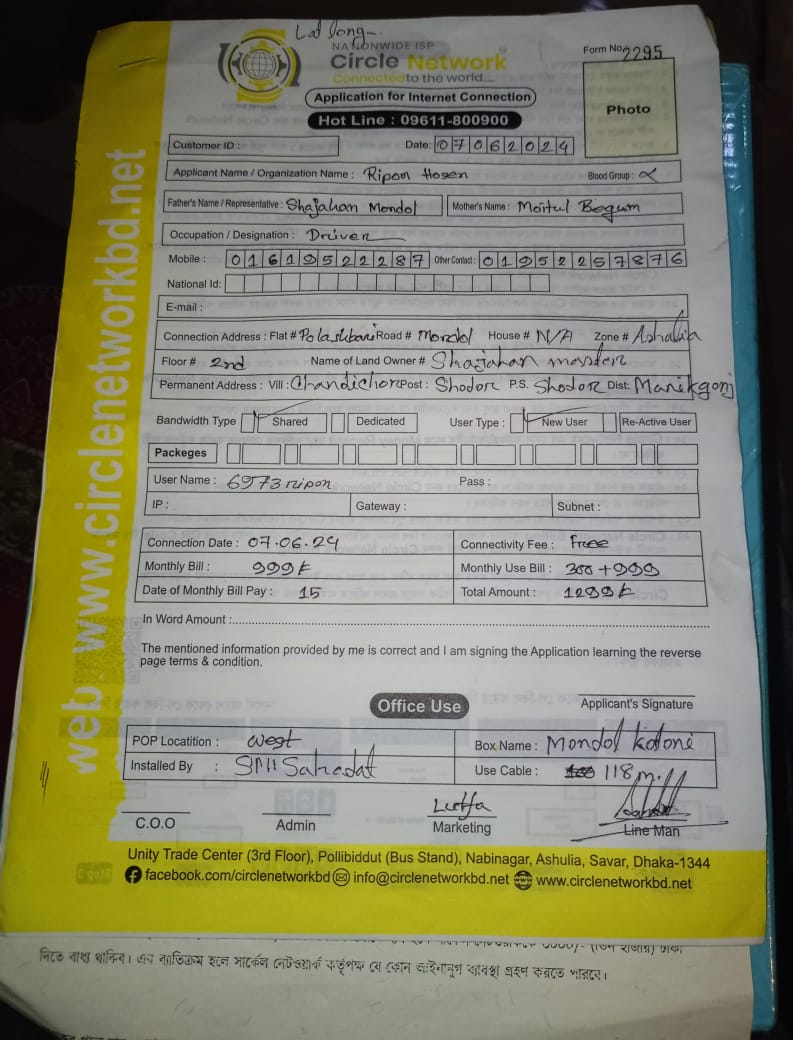 Lat long-
NATIONWIDE ISP
Circle Network
Connected to the world....
Form No 2295
Application for Internet Connection
Photo
Hot Line : 09611-800900
Customer ID :
Date: 07062024
Applicant Name / Organization Name : Ripon Hosen Blood Group :
Father's Name / Representative : Shajahan Mondol Mother's Name : Begum
Occupation / Designation : Driver
Mobile : 01619522287 Other Contact : 01952257876
National Id:
E-mail :
Connection Address : Flat # Polashbari Road # Mondol House # N/A Zone # Ashulia
Floor # 2nd Name of Land Owner # Shajahan
Permanent Address : Vill : Chandichor Post : Shodor P.S. Shodor Dist: Manikgonj
Bandwidth Type Shared Dedicated User Type : New User Re-Active User
Packeges
User Name : 6973ripon Pass :
IP : Gateway : Subnet :
Connection Date : 07.06.24 Connectivity Fee : Free
Monthly Bill : 999৳ Monthly Use Bill : 300+999
Date of Monthly Bill Pay : 15 Total Amount : 1299৳
In Word Amount :
The mentioned information provided by me is correct and I am signing the Application learning the reverse
page terms & condition.
Applicant's Signature
Office Use
POP Locatition : west Box Name : Mondol
Installed By : Use Cable : 118m.
Lutfa
C.O.O Admin Marketing Line Man
Unity Trade Center (3rd Floor), Pollibiddut (Bus Stand), Nabinagar, Ashulia, Savar, Dhaka-1344
facebook.com/circlenetworkbd info@circlenetworkbd.net www.circlenetworkbd.net
web: www.circlenetworkbd.net
দিতে বাধ্য থাকিব। এর ব্যতিক্রম হলে সার্কেল নেটওয়ার্ক কর্তৃপক্ষ যে কোন আইনানুগ ব্যবস্থা গ্রহণ করতে পারবে।